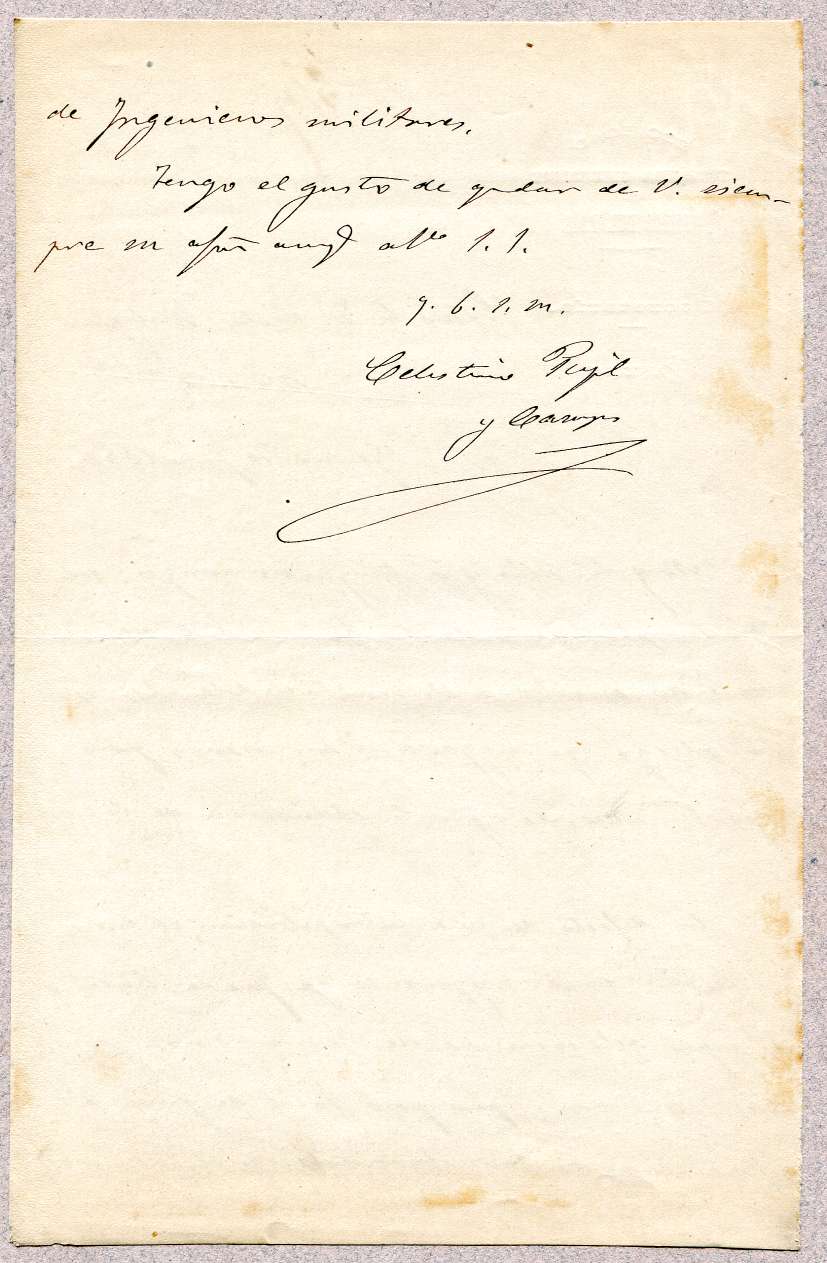 de Ingenieros militares.
Tengo el gusto de quedar de V. siem-
pre su afmo amigo atto s. s.
q. b. s. m.
Celestino Pujol
y Camps